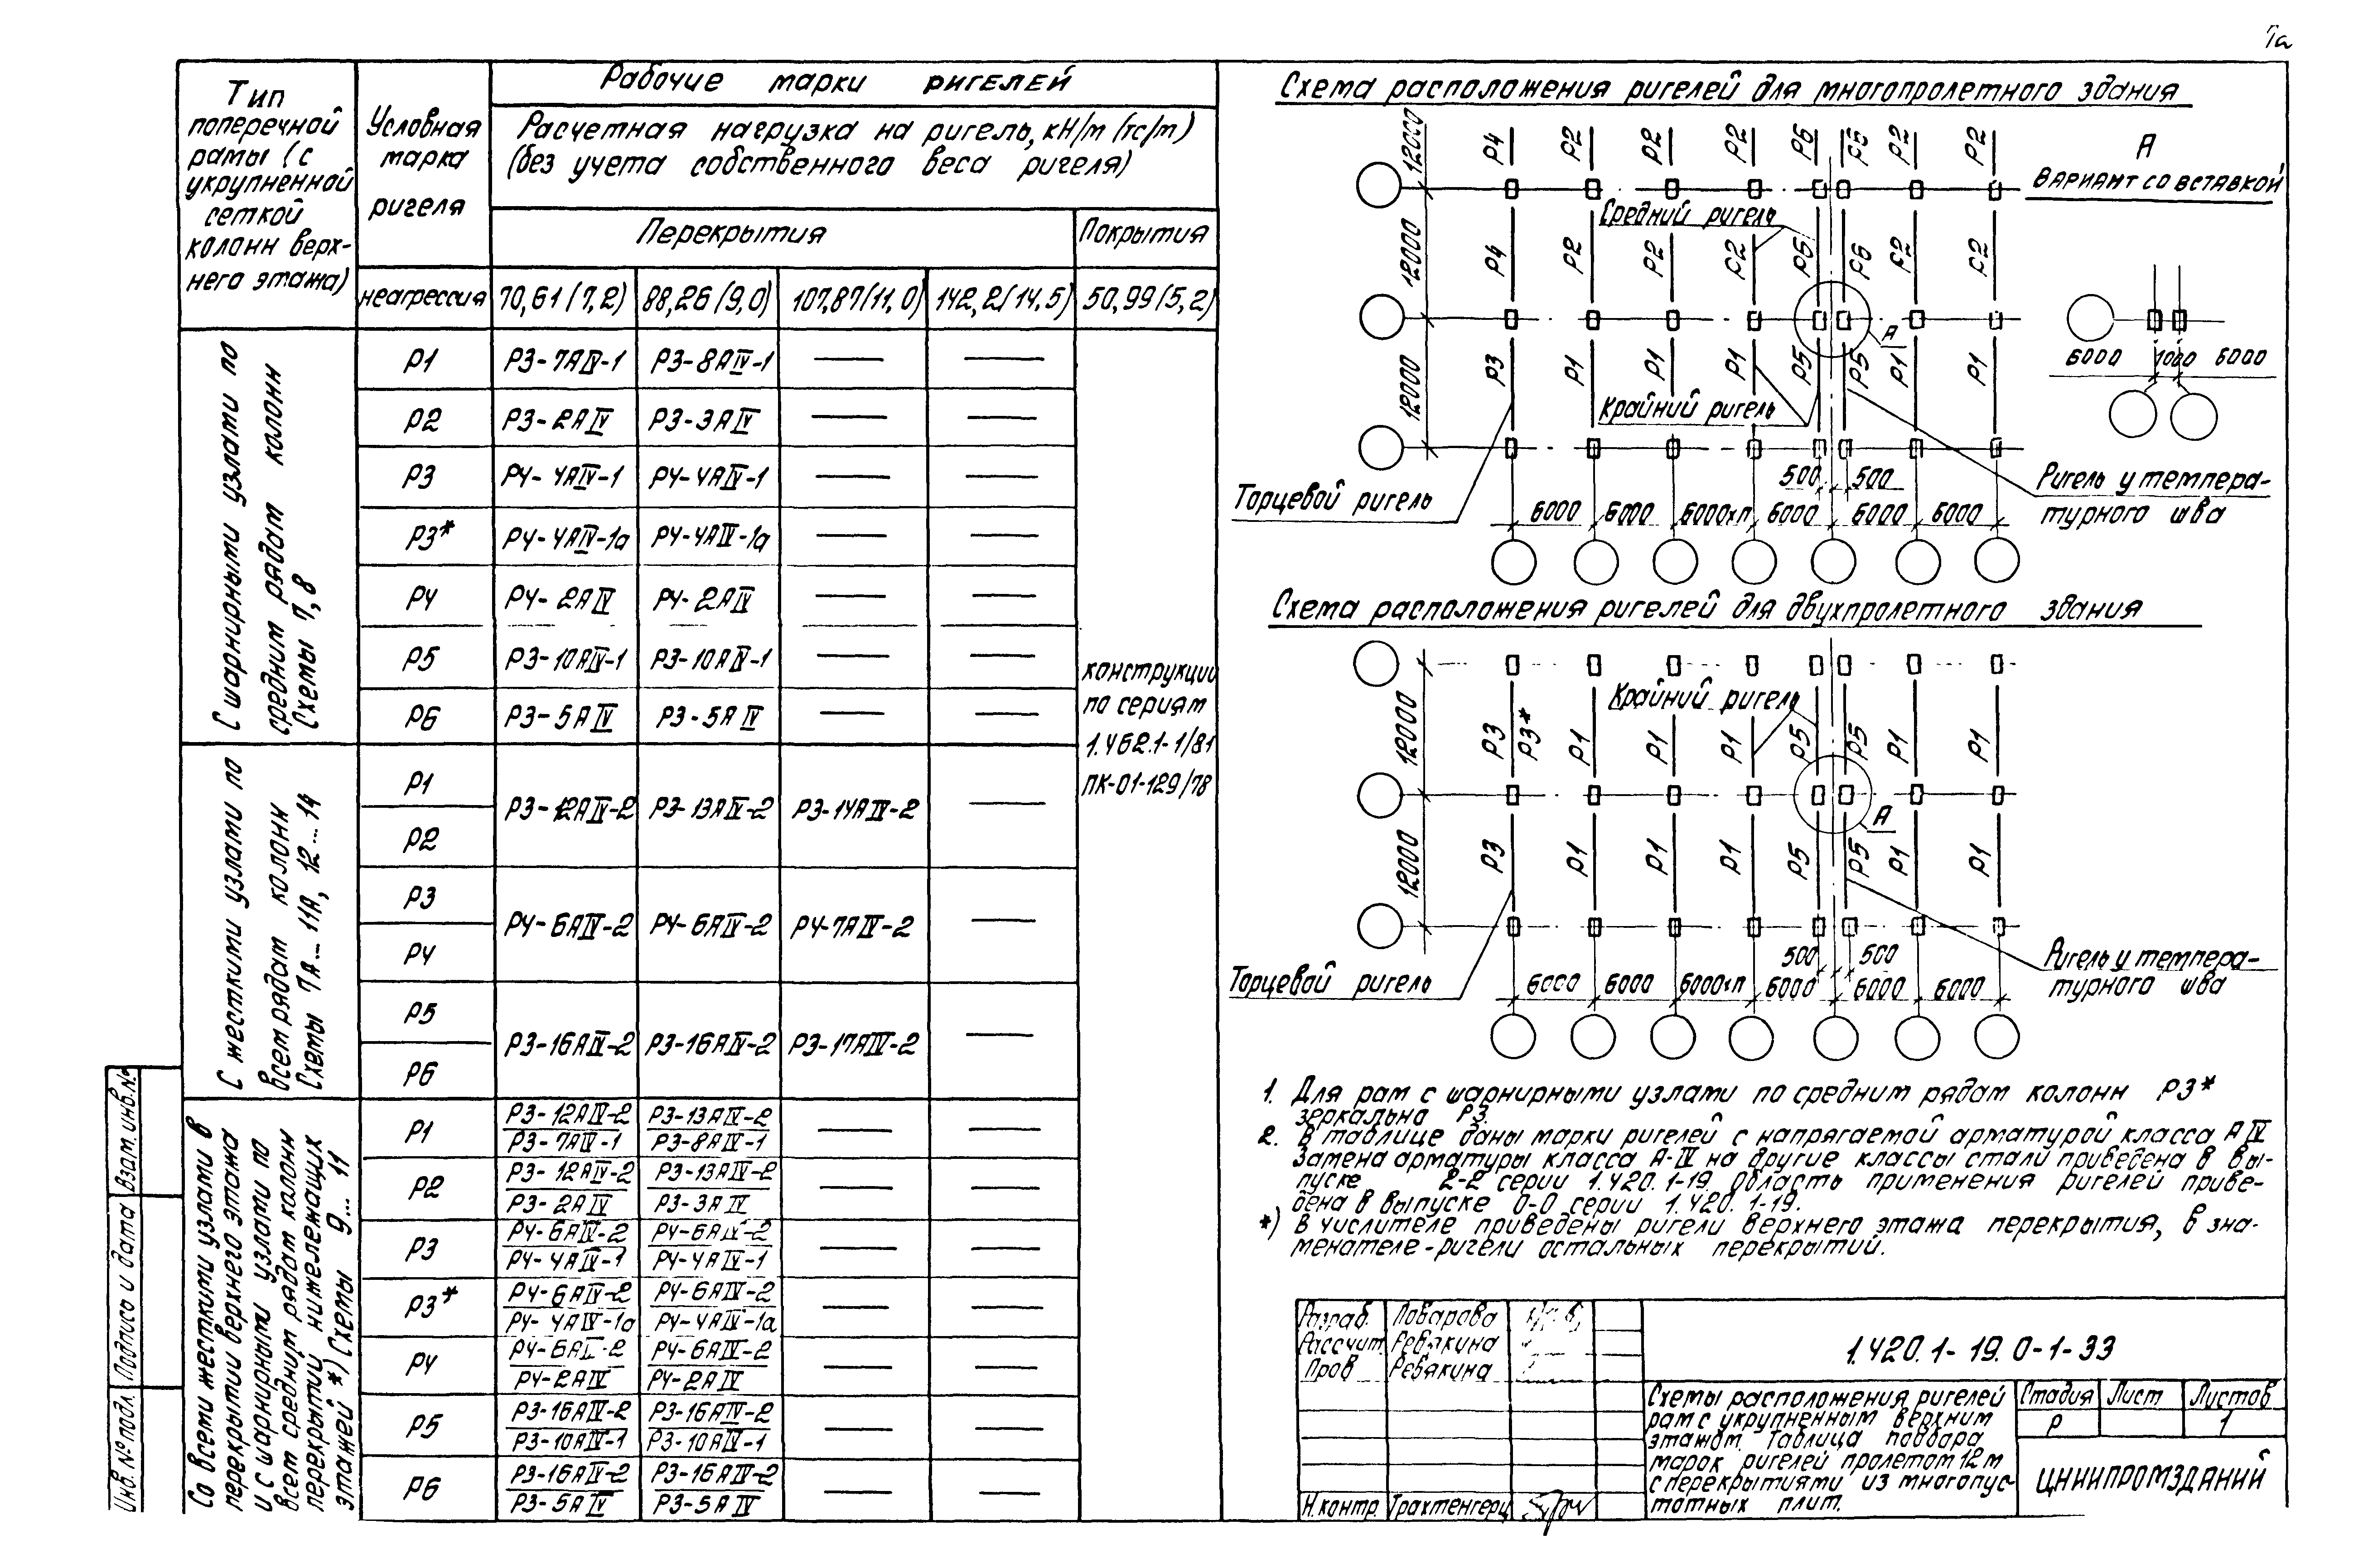 Тип
поперечной
рамы (с
укрупненной
сеткой
колонн верх-
него этажа)
Условная
марка
ригеля
неагрессия
Рабочие марки ригелей
Расчетная нагрузка на ригель, кН/м (тс/м)
(без учета собственного веса ригеля)
Перекрытия Покрытия
70,61 (7,2) 88,26 (9,0) 107,87 (11,0) 142,2 (14,5) 50,99 (5,2)
С шарнирными узлами по
средним рядам колонн
Схемы 7,8
Р1 Р3-7АIV-1 Р3-8АIV-1 — —
Р2 Р3-2АIV Р3-3АIV — —
Р3 Р4-4АIV-1 Р4-4АIV-1 — —
Р3* Р4-4АIV-1а Р4-4АIV-1а — —
Р4 Р4-2АIV Р4-2АIV — —
Р5 Р3-10АIV-1 Р3-10АIV-1 — —
Р6 Р3-5АIV Р3-5АIV — —
конструкции
по сериям
1.462.1-1/81
ПК-01-129/78
С жесткими узлами по
всем рядам колонн
Схемы 7А...11А, 12...14
Р1
Р3-12АIV-2 Р3-13АIV-2 Р3-14АIV-2 —
Р2
Р3
Р4-6АIV-2 Р4-6АIV-2 Р4-7АIV-2 —
Р4
Р5
Р3-16АIV-2 Р3-16АIV-2 Р3-17АIV-2 —
Р6
Со всеми жесткими узлами в
перекрытии верхнего этажа
и с шарнирными узлами по
всем средним рядам колонн
перекрытий нижележащих
этажей *) Схемы 9...11
Р3-12АIV-2 Р3-13АIV-2
Р1 — —
Р3-7АIV-1 Р3-8АIV-1
Р3-12АIV-2 Р3-13АIV-2
Р2 — —
Р3-2АIV Р3-3АIV
Р4-6АIV-2 Р4-6АIV-2
Р3 — —
Р4-4АIV-1 Р4-4АIV-1
Р4-6АIV-2 Р4-6АIV-2
Р3* — —
Р4-4АIV-1а Р4-4АIV-1а
Р4-6АIV-2 Р4-6АIV-2
Р4 — —
Р4-2АIV Р4-2АIV
Р3-16АIV-2 Р3-16АIV-2
Р5 — —
Р3-10АIV-1 Р3-10АIV-1
Р3-16АIV-2 Р3-16АIV-2
Р6 — —
Р3-5АIV Р3-5АIV
Инв. № подл. Подпись и дата Взам. инв. №
Схема расположения ригелей для многопролетного здания
12000 Р4 Р2 Р2 Р2 Р6 Р6 Р2 Р2
А
Вариант со вставкой
Средний ригель
12000 Р4 Р2 Р2 Р2 Р6 Р6 Р2 Р2
А
6000 1000 6000
12000 Р3 Р1 Р1 Р1 Р5 Р5 Р1 Р1
Крайний ригель
500 500
Торцевой ригель
Ригель у темпера-
турного шва
6000 6000 6000хп 6000 6000 6000
Схема расположения ригелей для двухпролетного здания
Крайний ригель
12000 Р3 Р3* Р1 Р1 Р1 Р5 Р5 Р1 Р1
А
12000 Р3 Р1 Р1 Р1 Р5 Р5 Р1 Р1
500 500
Торцевой ригель
Ригель у темпера-
турного шва
6000 6000 6000хп 6000 6000 6000
1. Для рам с шарнирными узлами по средним рядам колонн Р3*
зеркально Р3.
2. В таблице даны марки ригелей с напрягаемой арматурой класса АIV
Замена арматуры класса А-IV на другие классы стали приведена в вы-
пуске 2-2 серии 1.420.1-19. Область применения ригелей приве-
дена в выпуске 0-0 серии 1.420.1-19.
*) В числителе приведены ригели верхнего этажа перекрытия, в зна-
менателе-ригели остальных перекрытий.
Разраб. Поварова
Рассчит. Ревякина
Пров Ревякина
Н.контр. Трахтенгерц
1.420.1-19.0-1-33
Схемы расположения ригелей
рам с укрупненным верхним
этажом. Таблица подбора
марок ригелей пролетом 12 м
с перекрытиями из многопус-
тотных плит.
Стадия Лист Листов
Р 1
ЦНИИПРОМЗДАНИЙ